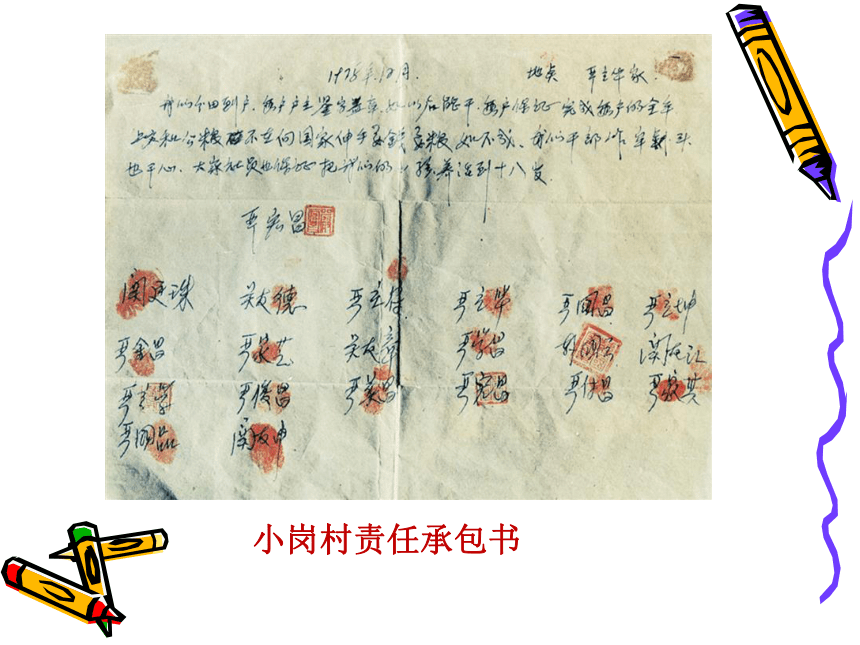 1978年12月. 地点 严立华家.
我们分田到户.每户户主签字盖章.如以后能干.每户保证完成每户的全年
上交和公粮.不在向国家伸手要钱要粮.如不成.我们干部作牢刹头
也干心.大家社员也保证把我们的小孩养活到十八岁.
严宏昌
关廷珠 关友德 严立符 严立华 严国昌 严立坤
严金昌 严家芝 关友章 严学昌 韩国云 关友江
严立学 严俊昌 严美昌 严宏昌 严付昌 严家其
严国品 关友申
小岗村责任承包书